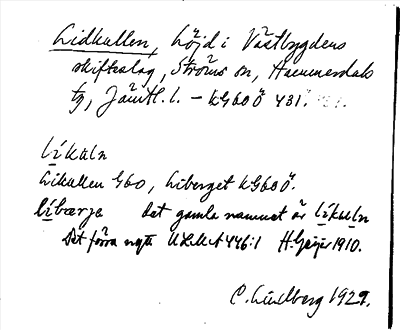 Lidkullen, höjd i Västbygdens
skifteslag, Ströms sn, Hammerdals
tg, Jämtl. l. – kG60Ö 431.
líkuln
Likullen G60, Liberget kG60Ö.
líbærje det gamla namnet är líkuln
Det förra nytt ULMA 446:1 H. Geijer 1910.
C. Lindberg 1929.